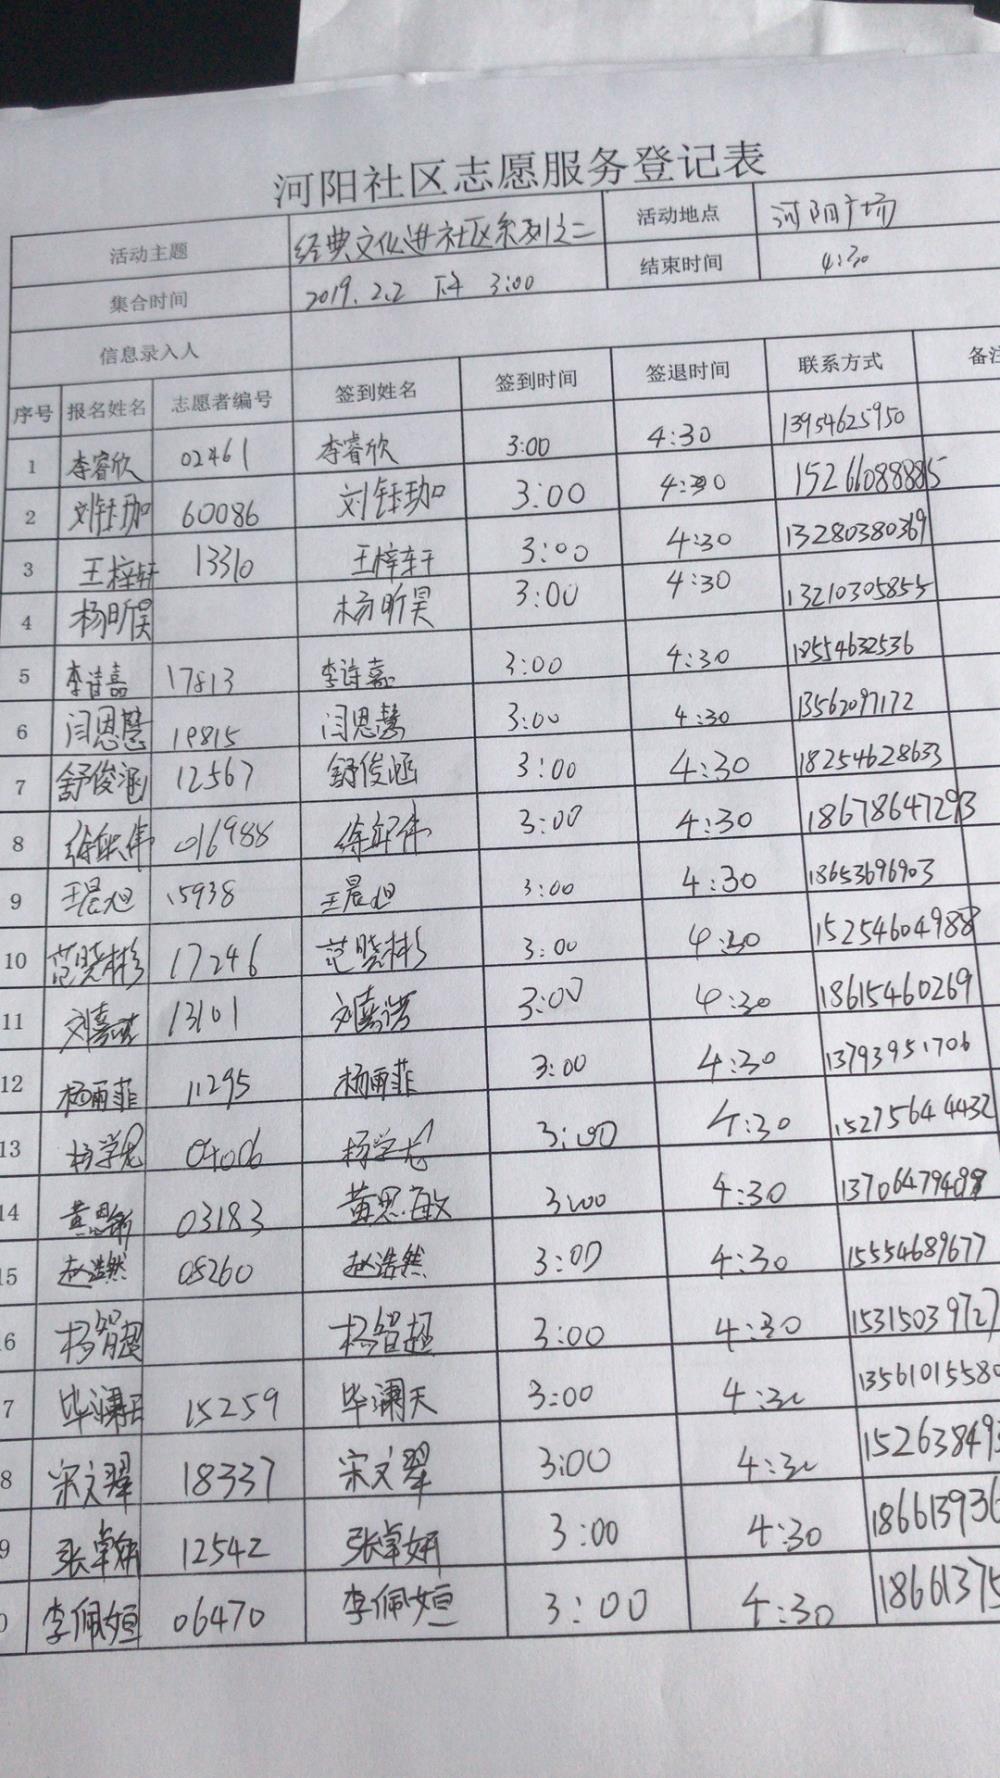 河阳社区志愿服务登记表
活动主题 经典文化进社区系列之二 活动地点 河阳广场
集合时间 2019.2.2 下午 3:00 结束时间 4:30
信息录入人
序号 报名姓名 志愿者编号 签到姓名 签到时间 签退时间 联系方式 备注
1 李睿欣 02461 李睿欣 3:00 4:30 13954625950
2 刘钰珈 60086 刘钰珈 3:00 4:30
3 王梓轩 13310 王梓轩 3:00 4:30 13280380369
4 杨昕昊 杨昕昊 3:00 4:30 13210305855
5 李诗嘉 17813 李诗嘉 3:00 4:30 18554632536
6 闫恩慧 19815 闫恩慧 3:00 4:30 13562097172
7 舒俊涵 12567 舒俊涵 3:00 4:30 18254628633
8 016988 3:00 4:30 18678647293
9 王晨旭 15938 王晨旭 3:00 4:30 18653696903
10 范晓彬 17246 范晓彬 3:00 4:30 15254604988
11 刘嘉诺 13101 刘嘉诺 3:00 4:30 18615460269
12 杨雨菲 11295 杨雨菲 3:00 4:30 13793951706
13 04006 3:00 4:30 15275644432
14 黄思敏 03183 黄思敏 3:00 4:30
15 赵浩然 08260 赵浩然 3:00 4:30 15554689677
6 杨智超 杨智超 3:00 4:30 15315039727
7 毕澜天 15259 毕澜天 3:00 4:30 1356101558
8 宋文翠 18337 宋文翠 3:00 4:30 152638493
9 张卓妍 12542 张卓妍 3:00 4:30 186613936
0 李佩姮 06470 李佩姮 3:00 4:30 18661375